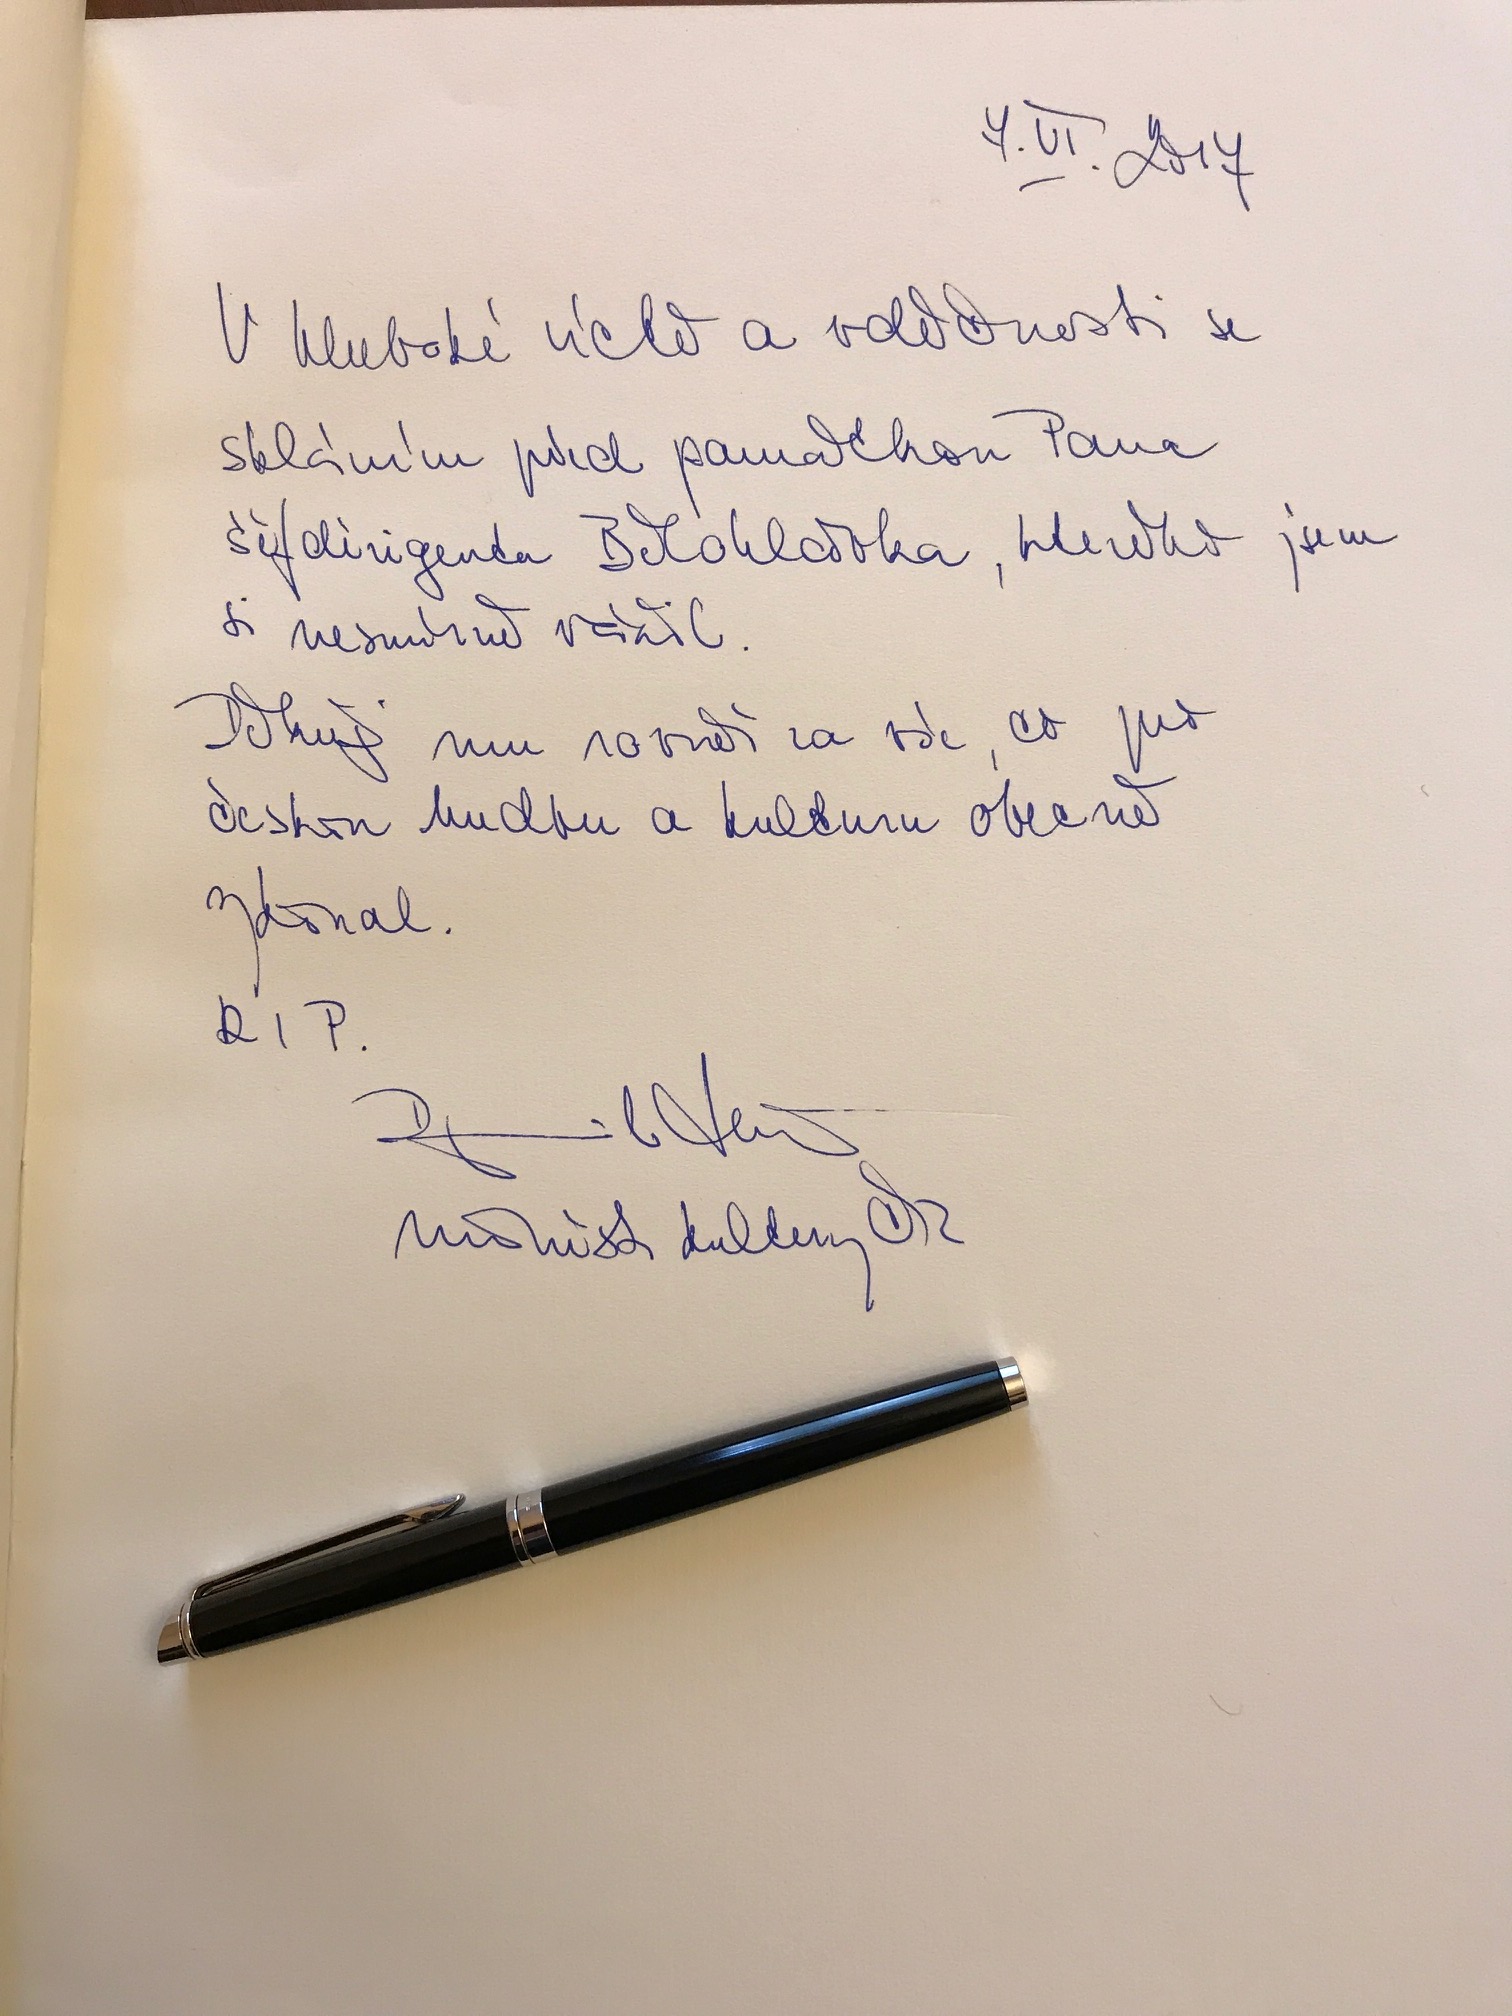 7. VI. 2017
V hluboké úctě a vděčnosti se
skláním před památkou Pana
šéfdirigenta Bělohlávka, kterého jsem
si nesmírně vážil.
Děkuji mu rovněž za vše, co pro
českou hudbu a kulturu obecně
vykonal.
R I P.
ministr kultury ČR